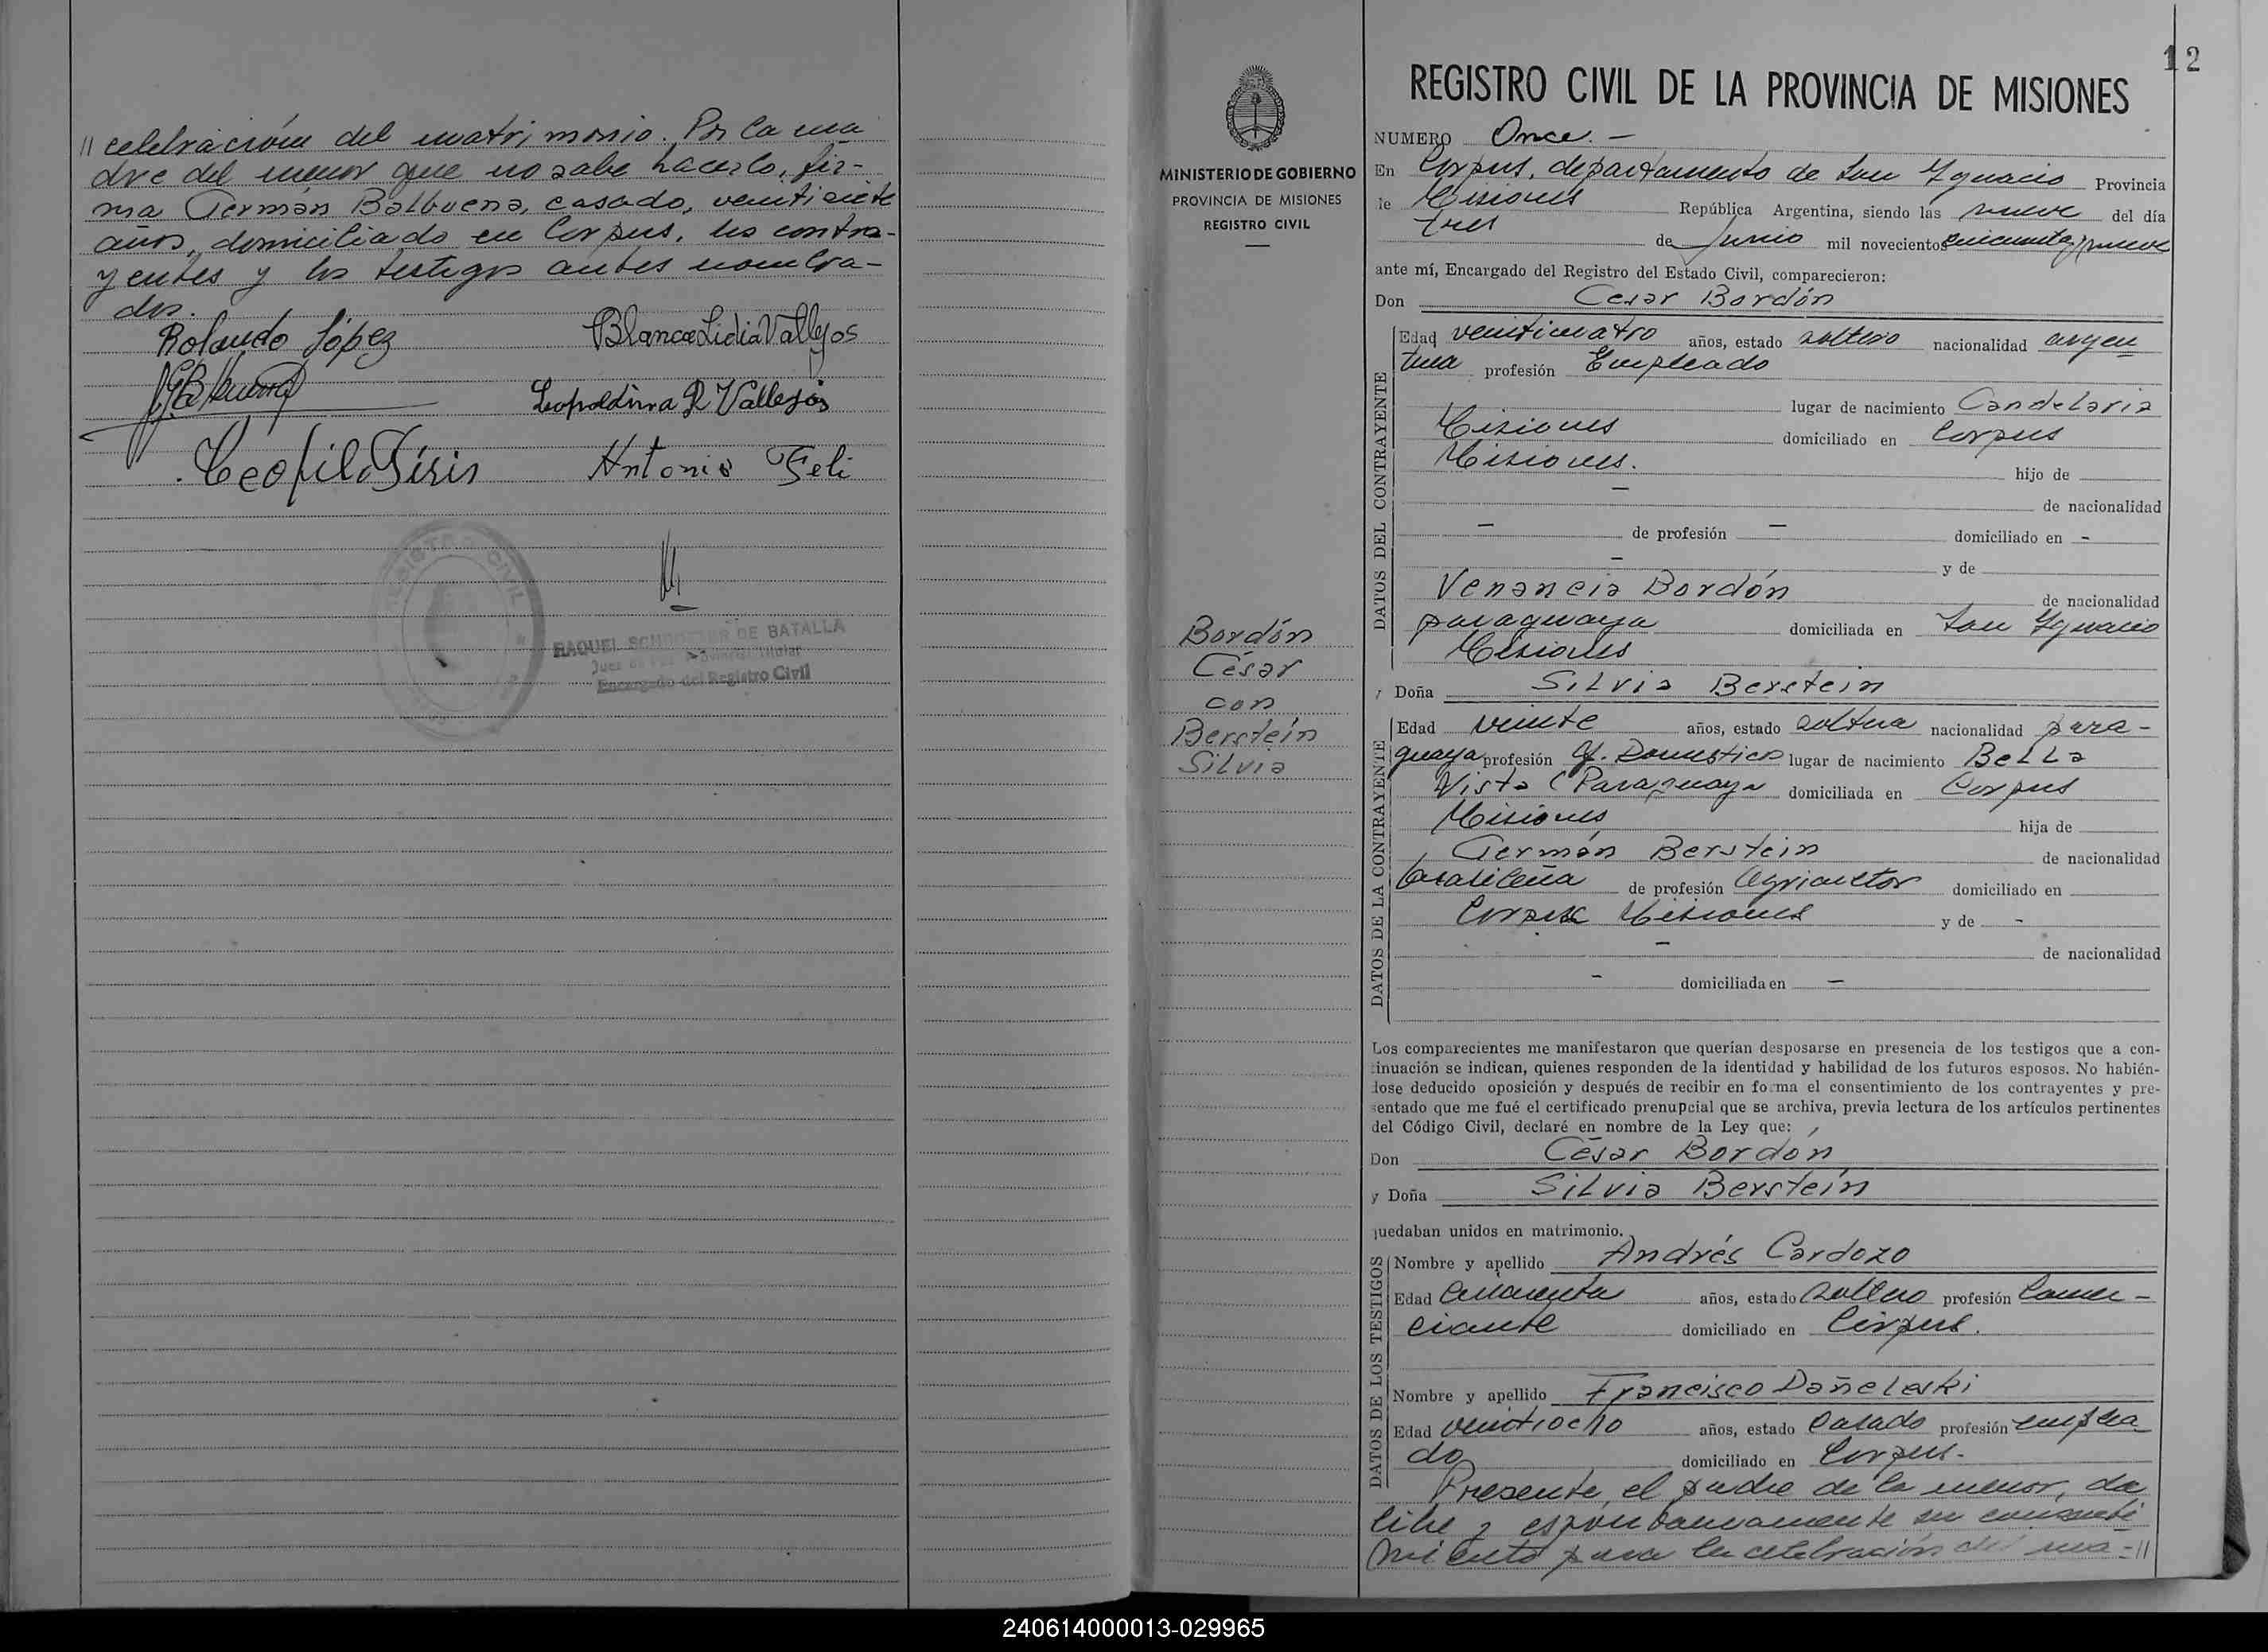 // celebración del matrimonio. Por la ma
dre del menor que no sabe hacerlo, fir-
ma Germán Balbuena, casado, veintisiete
años, domiciliado en Corpus, los contra-
yentes y los testigos antes nombra-
dos.
Rolando López Blanca Lidia Vallejos
Leopoldina R Vallejos
Antonio
REGISTRO CIVIL
RAQUEL DE BATALLA
Juez de Paz Titular
Encargado del Registro Civil
MINISTERIO DE GOBIERNO
PROVINCIA DE MISIONES
REGISTRO CIVIL
Bordón
César
con
Berstein
Silvia
12
REGISTRO CIVIL DE LA PROVINCIA DE MISIONES
NUMERO Once.-
En Corpus, departamento de San Ygnacio Provincia
de Misiones República Argentina, siendo las nueve del día
tres de Junio mil novecientos cincuenta y nueve
ante mí, Encargado del Registro del Estado Civil, comparecieron:
Don Cesar Bordón
DATOS DEL CONTRAYENTE
Edad veinticuatro años, estado soltero nacionalidad argen
tina profesión Empleado
lugar de nacimiento Candelaria
Misiones domiciliado en Corpus
Misiones. hijo de
— de nacionalidad
— de profesión — domiciliado en -
— y de
Venancia Bordón de nacionalidad
paraguaya domiciliada en San Ygnacio
Misiones
y Doña Silvia Berstein
DATOS DE LA CONTRAYENTE
Edad veinte años, estado soltera nacionalidad para-
guaya profesión Q. Domesticos lugar de nacimiento Bella
Vista (Paraguaya domiciliada en Corpus
Misiones hija de
Germán Berstein de nacionalidad
brasileña de profesión Agricultor domiciliado en
Corpus Misiones y de -
— de nacionalidad
- domiciliada en —
Los comparecientes me manifestaron que querían desposarse en presencia de los testigos que a con-
tinuación se indican, quienes responden de la identidad y habilidad de los futuros esposos. No habién-
dose deducido oposición y después de recibir en forma el consentimiento de los contrayentes y pre-
sentado que me fué el certificado prenupcial que se archiva, previa lectura de los artículos pertinentes
del Código Civil, declaré en nombre de la Ley que:
Don César Bordón
y Doña Silvia Berstein
quedaban unidos en matrimonio.
DATOS DE LOS TESTIGOS
Nombre y apellido Andrés Cardozo
Edad Cuarenta años, estado soltero profesión Comer-
ciante domiciliado en Corpus.
Nombre y apellido Francisco Dañeleski
Edad veintiocho años, estado Casado profesión emplea
do domiciliado en Corpus.
Presente, el padre de la menor, da
libre y espontaneamente su consenti
miento para la celebración del ma-//
240614000013-029965